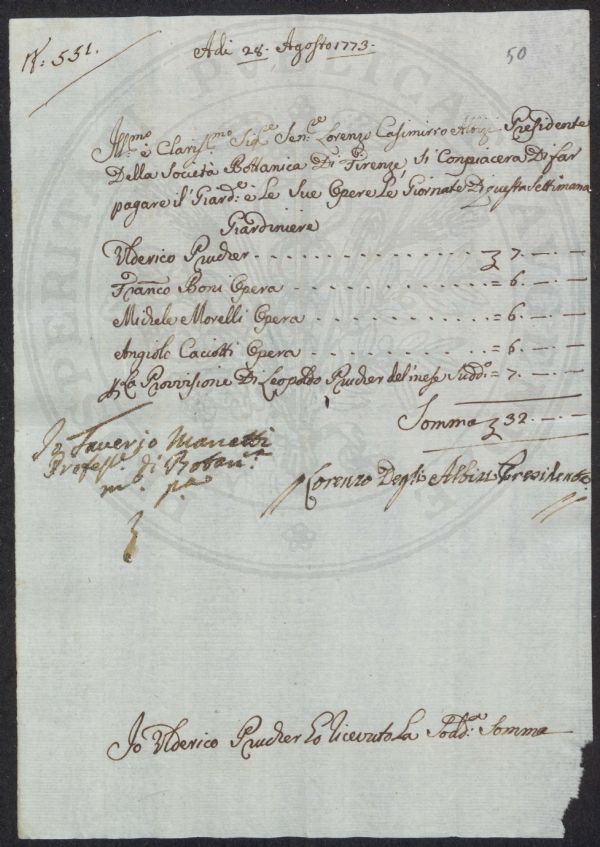 N. 551.
Adi 28. Agosto 1773.
50
Ill.mo e Clariss.mo Sig.re Sen.re Lorenzo Casimirro Albizi Presidente
Della Società Bottanica Di Firenze, Si Conpiacera Di far
pagare il Giard.e e Le Sue Opere Le Giornate Di questa Settimana
Giardiniere
Ulderico Prucher . . . . . . . . . . . . . . . . 7. — . —
Franco Boni Opera . . . . . . . . . . . . . = 6. — . —
Michele Morelli Opera . . . . . . . . . . . = 6. — . —
Angiolo Caciotti Opera . . . . . . . . . . . = 6. — . —
La Provvisione Di Leopoldo Prucher del mese Sudd.o = 7. — . —
Somma 32. — . —
Io Saverio Manetti
Profess.e di Botan.ca
m.o p.a
Lorenzo Degli Albizi Presidente
Io Ulderico Prucher ho ricevuto La Sodd.a Somma